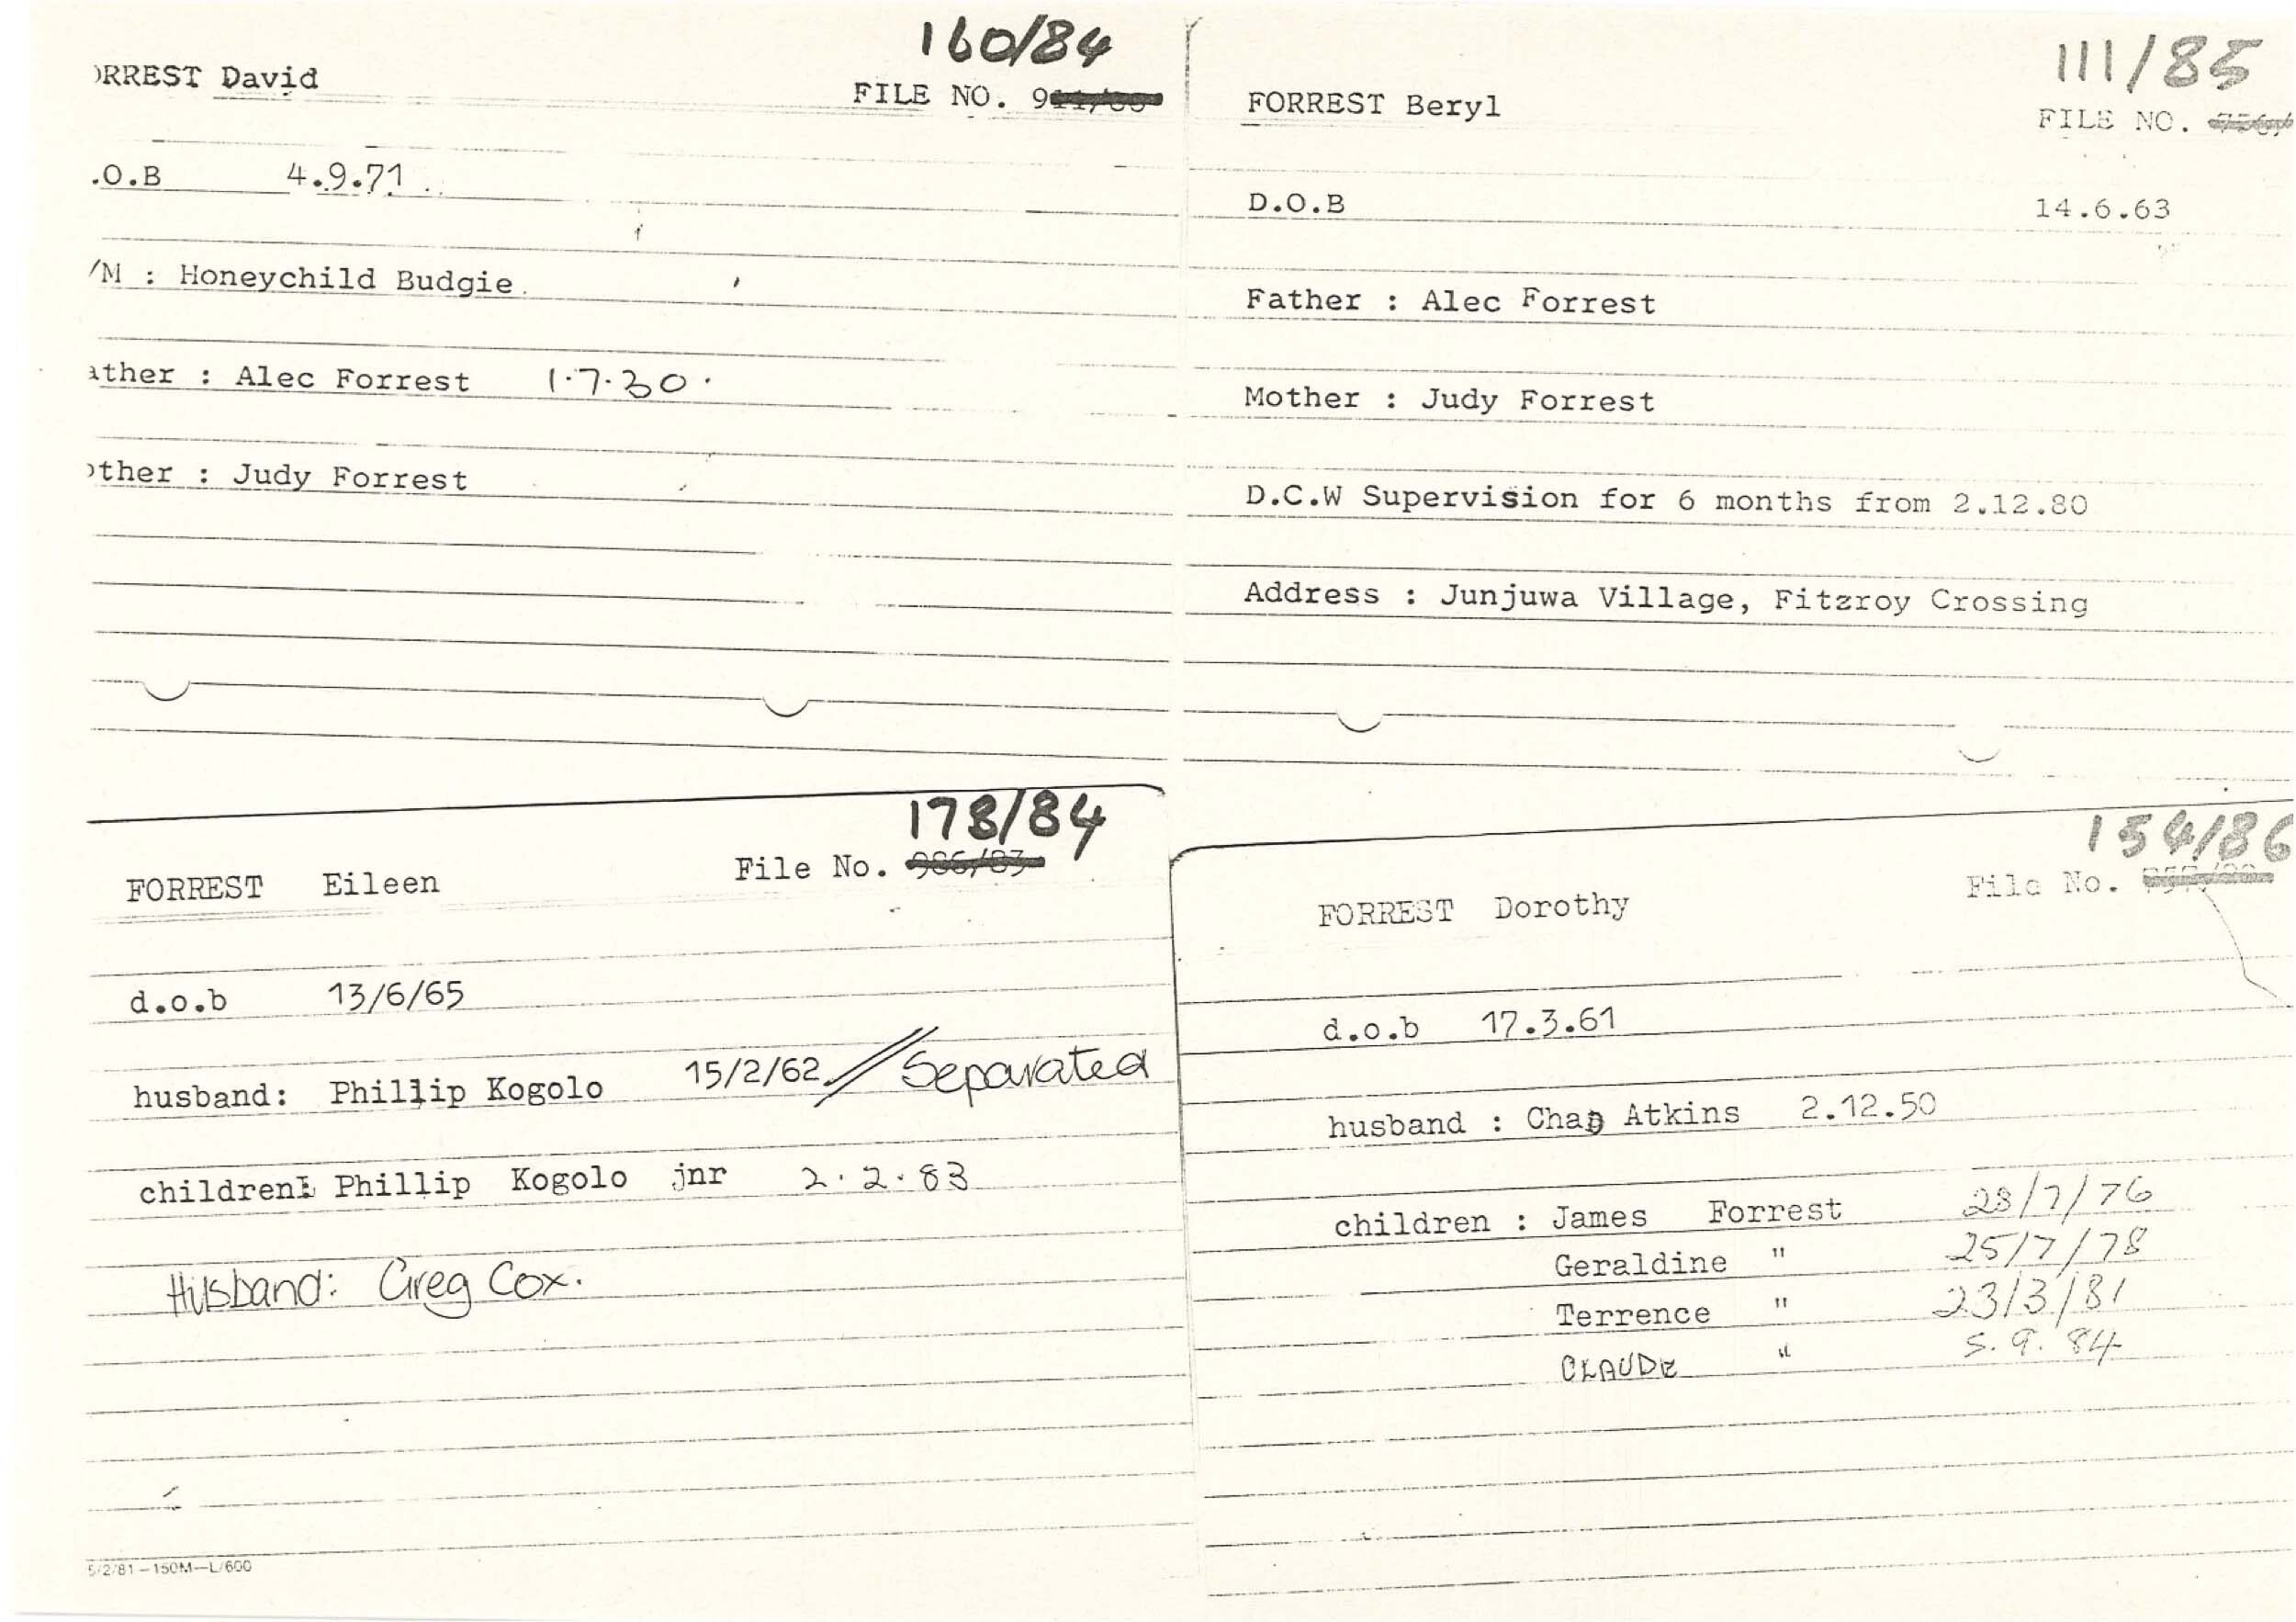 160/84
ORREST David FILE NO. 9
.O.B 4.9.71
/M : Honeychild Budgie
ather : Alec Forrest 1.7.30.
other : Judy Forrest
111/85
FORREST Beryl FILE NO.
D.O.B 14.6.63
Father : Alec Forrest
Mother : Judy Forrest
D.C.W Supervision for 6 months from 2.12.80
Address : Junjuwa Village, Fitzroy Crossing
178/84
FORREST Eileen File No. 986/83
d.o.b 13/6/65
husband: Phillip Kogolo 15/2/62 // Separated
children: Phillip Kogolo jnr 2.2.83
Husband: Greg Cox.
154/86
FORREST Dorothy File No.
d.o.b 17.3.61
husband : Chap Atkins 2.12.50
children : James Forrest 28/7/76
Geraldine " 25/7/78
Terrence " 23/3/81
CLAUDE " 5.9.84
5/2/81-150M-L/600